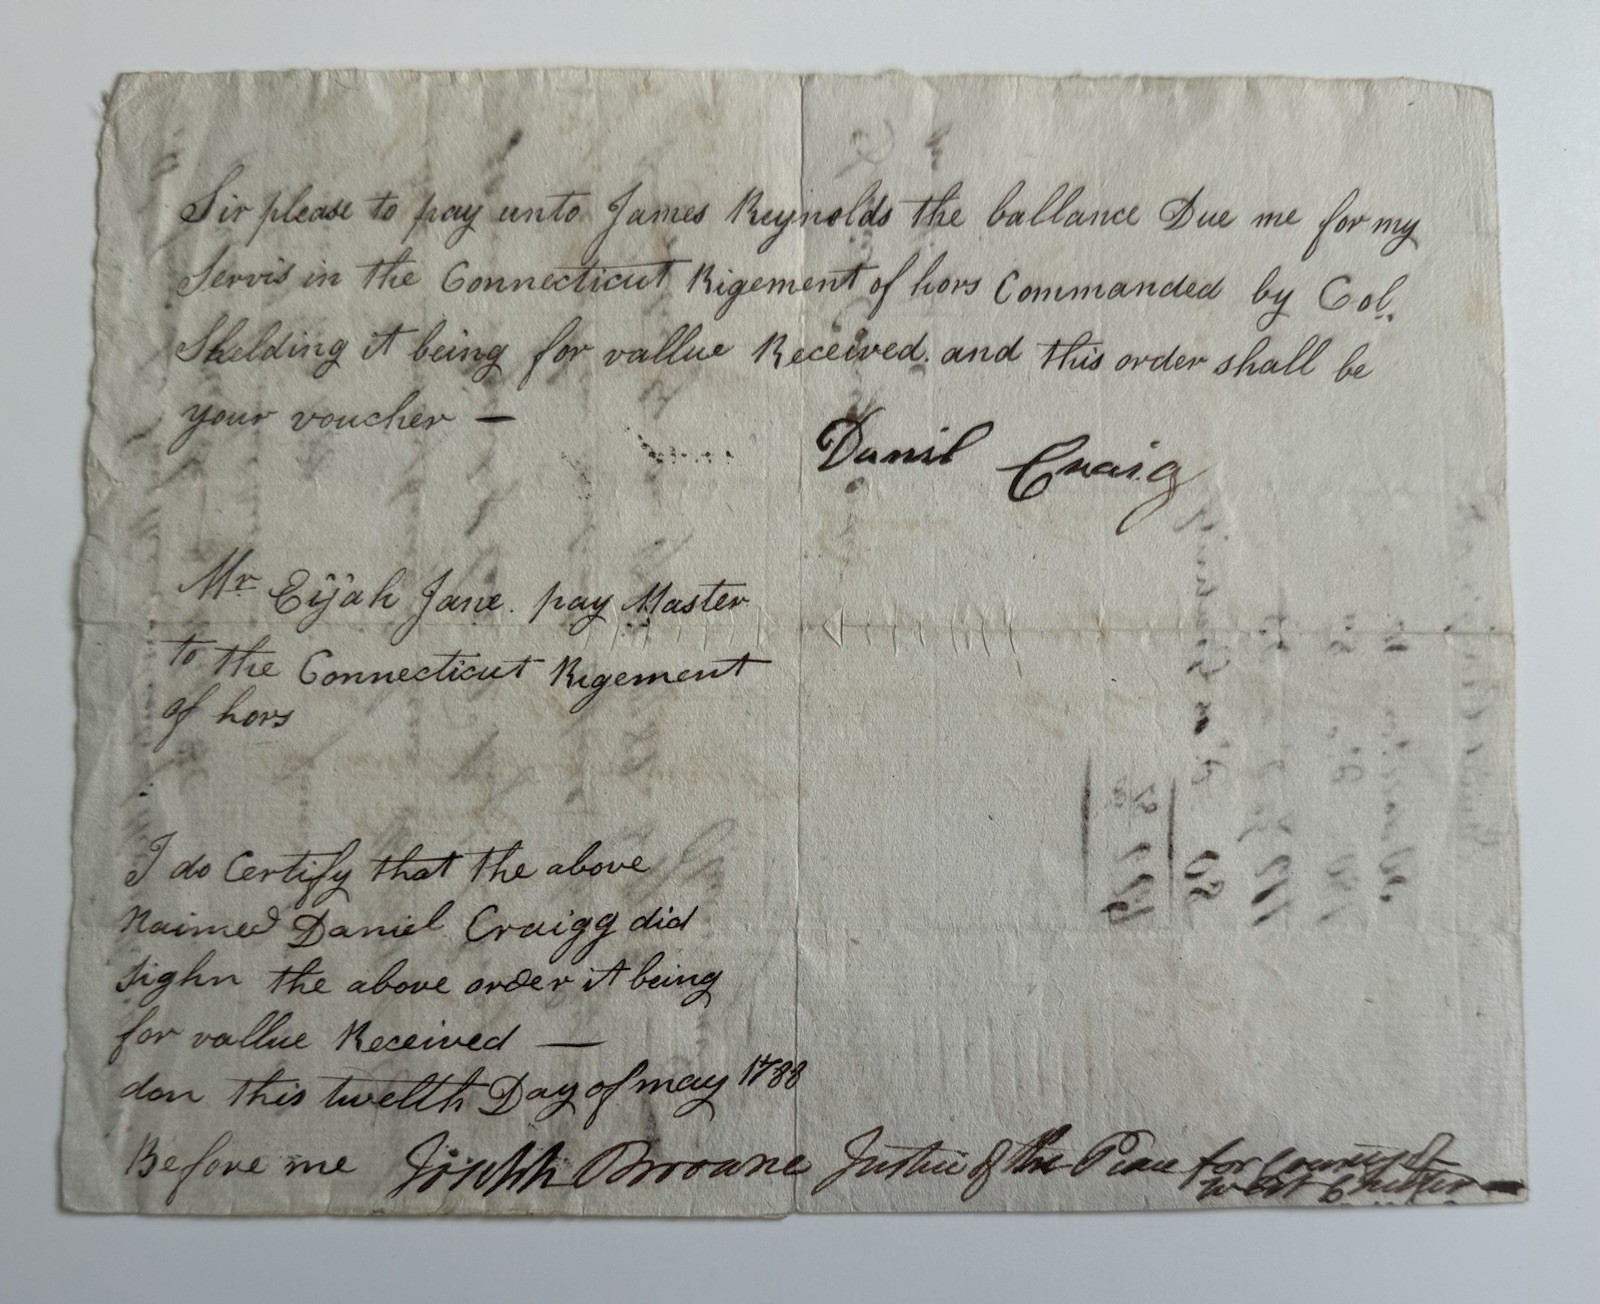 Sir please to pay unto James Reynolds the ballance Due me for my
Servis in the Connecticut Rigement of hors Commanded by Col.
Shelding it being for vallue Received. and this order shall be
your voucher —
Danil Craig
Mr Eijah Jane. pay Master
to the Connecticut Rigement
of hors
I do Certify that the above
Naimed Daniel Craigg did
Sighn the above order it being
for vallue Received —
don this twelth Day of may 1788
Before me Joseph Browne Justice of the Peace for County of
West Chester —